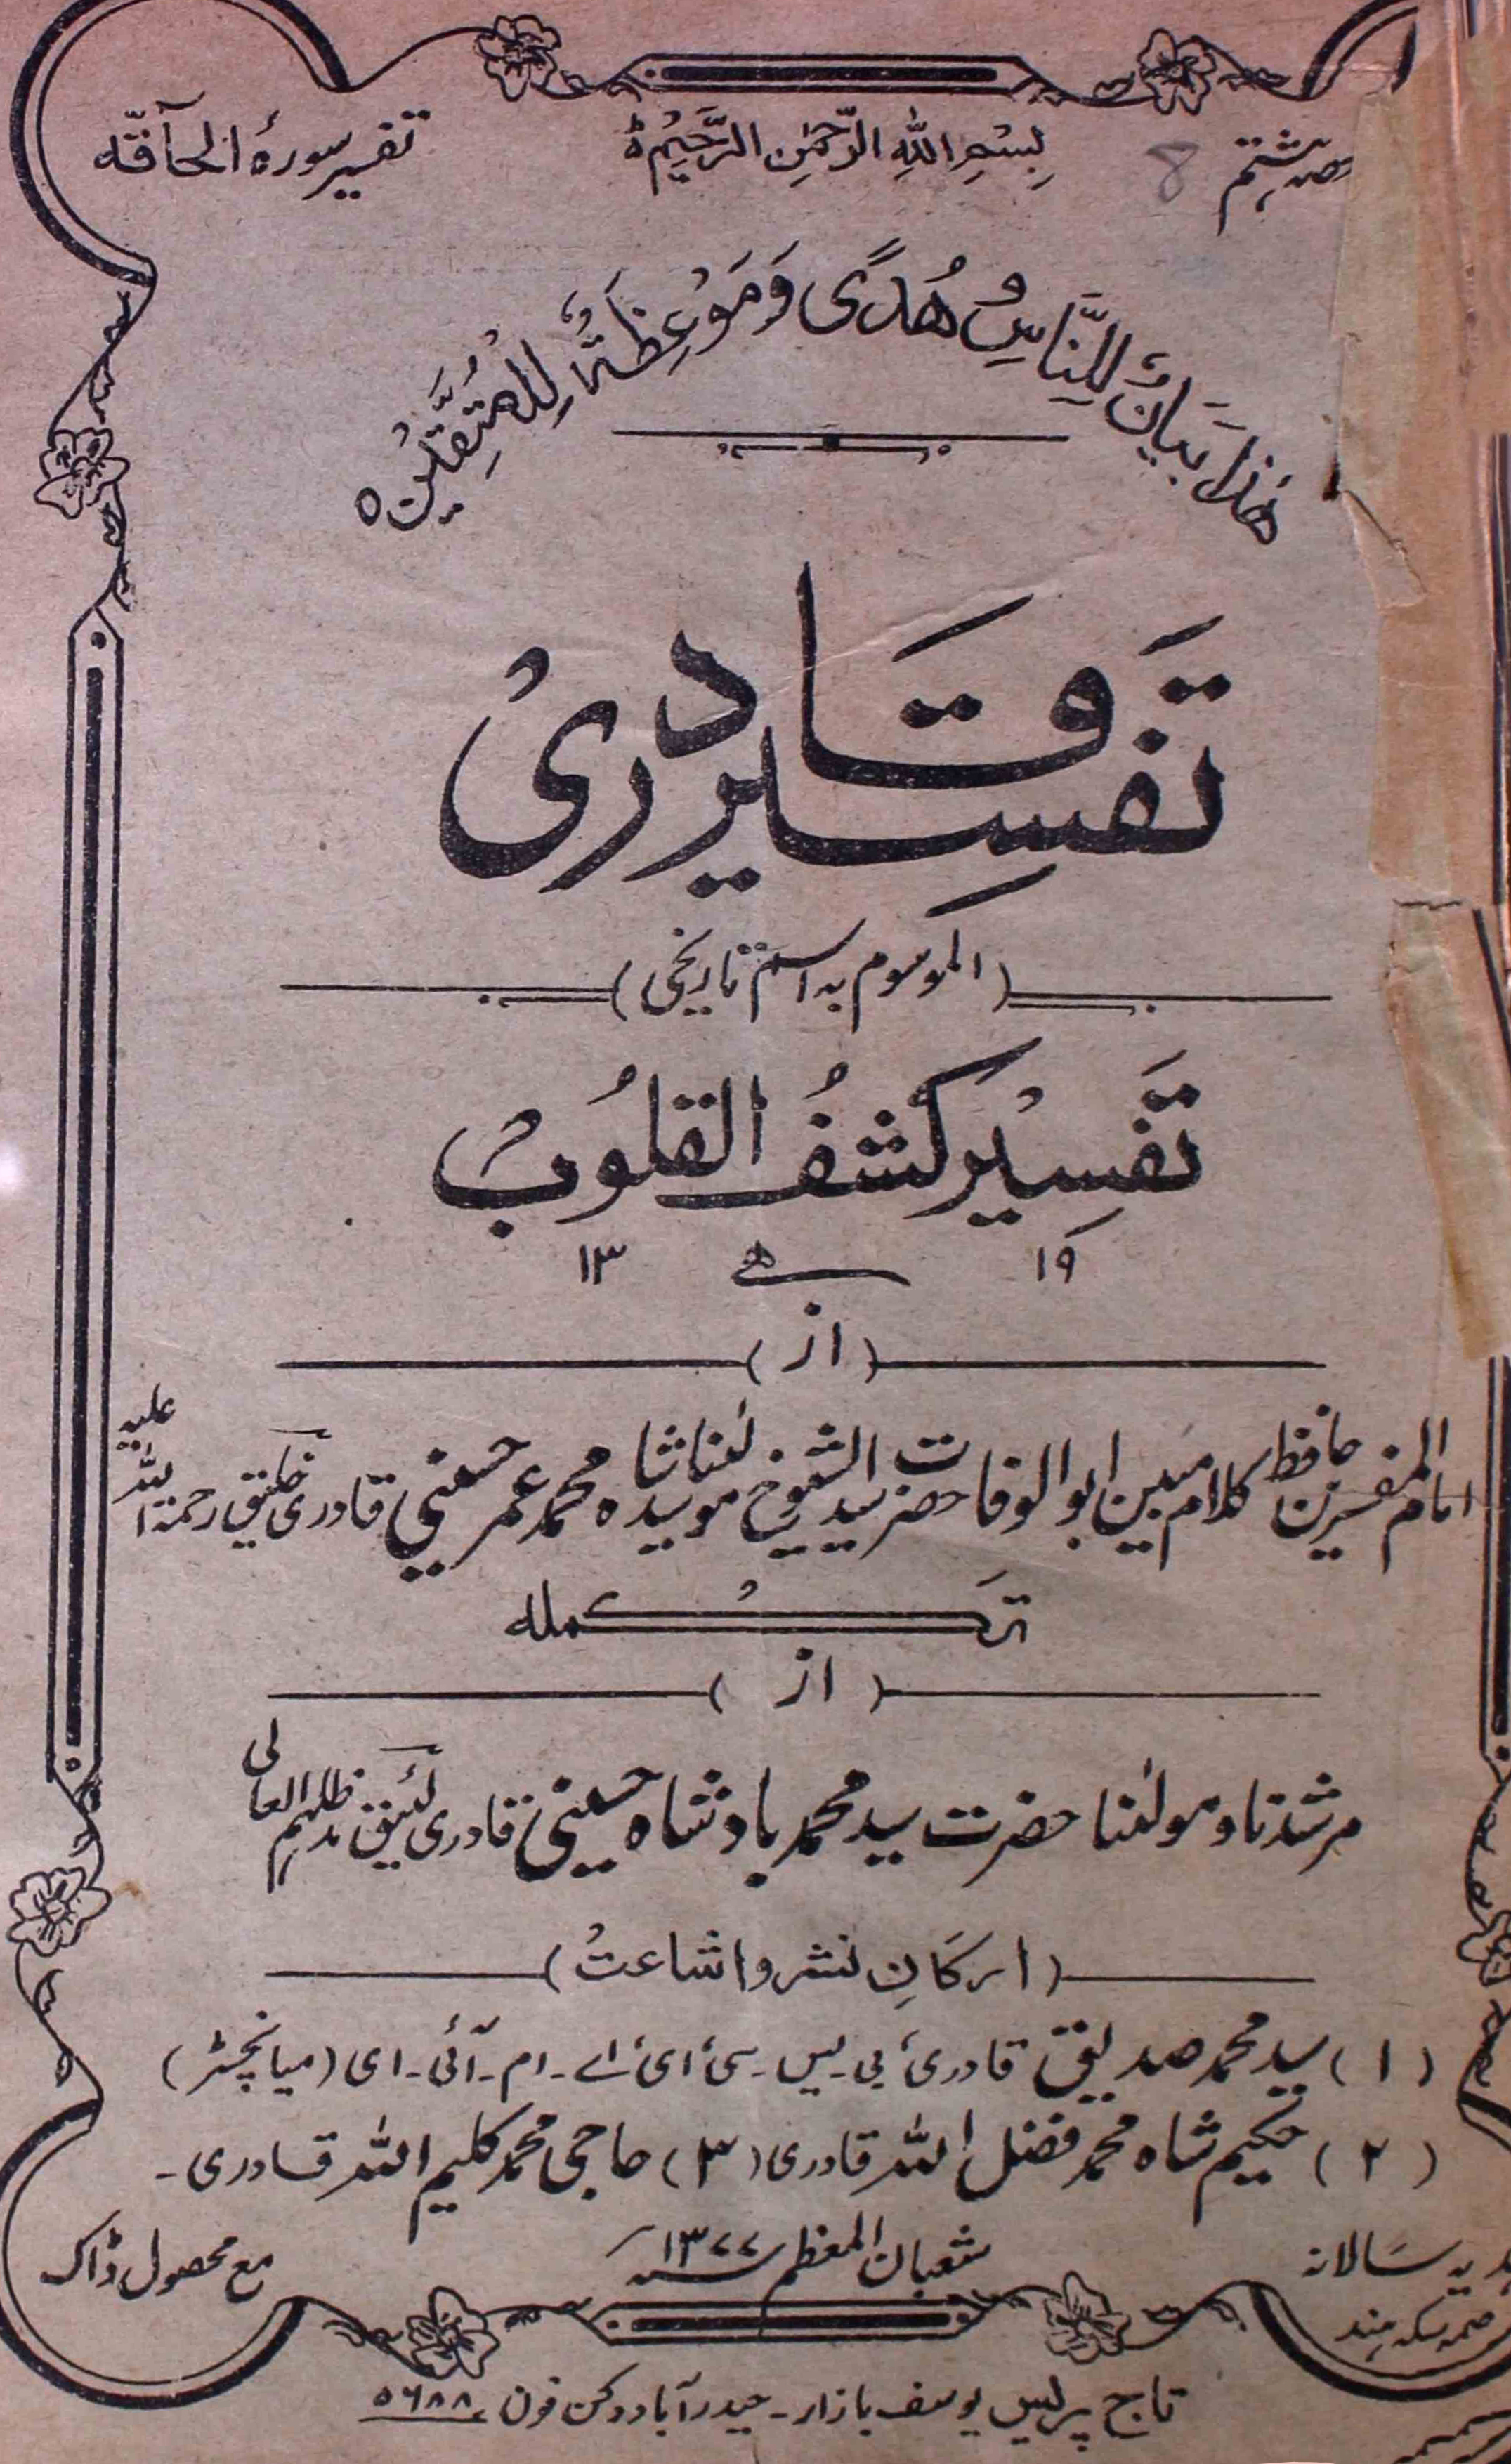 حصہ ہشتم 8 بِسْمِ اللهِ الرَّحْمٰنِ الرَّحِيْمِ تفسیر سورۂ الحآقّہ
هٰذَا بَيَانٌ لِّلنَّاسِ وَهُدًى وَّمَوْعِظَةٌ لِّلْمُتَّقِيْنَ ٥
تَفسِیر قَادری
(الموسوم بہ اسم تاریخی)
تَفسِیْر کشفُ القلُوبْ
۱۹ ۱۳ ھ
(از)
امام المفسرین حافظ کلام مبین ابوالوفا حضرت سید الشیوخ مولٰنا سیدہ شاہ محمد عمر حسینی قادری خلیق رحمۃ اللہ علیہ
تکملہ
(از)
مرشدنا و مولٰنا حضرت سید محمد بادشاہ حسینی قادری لئیق مدظلہم العالی
(ارکانِ نشر و اشاعت)
(۱) سید محمد صدیق قادری بی۔یس۔سی ای اے۔ام۔آئی۔ای (میانچسٹر)
(۲) حکیم شاہ محمد فضل اللہ قادری (۳) حاجی محمد کلیم اللہ قادری۔
ہدیہ سالانہ شعبان المعظم سنہ ۱۳۷۷ مع محصول ڈاک
سکہ ہند
تاج پریس یوسف بازار۔ حیدرآباد دکن فون ۵۶۸۸